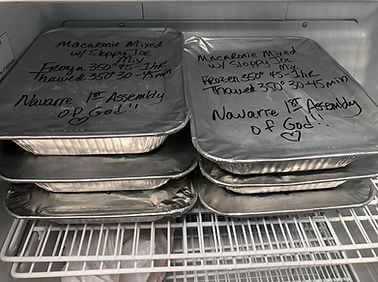 Macaronie Mixed
w/ Sloppy Joe
Mix
Frozen 350° 45-1hr
Thawed 350° 30-45min
Navarre 1st Assembly
of God!!
♡
Macaronie Mixed
w/ Sloppy Joe
Mix
Frozen 350° 45-1hr
Thawed 350° 30-45min
Navarre 1st Assembly
of God!!
♡